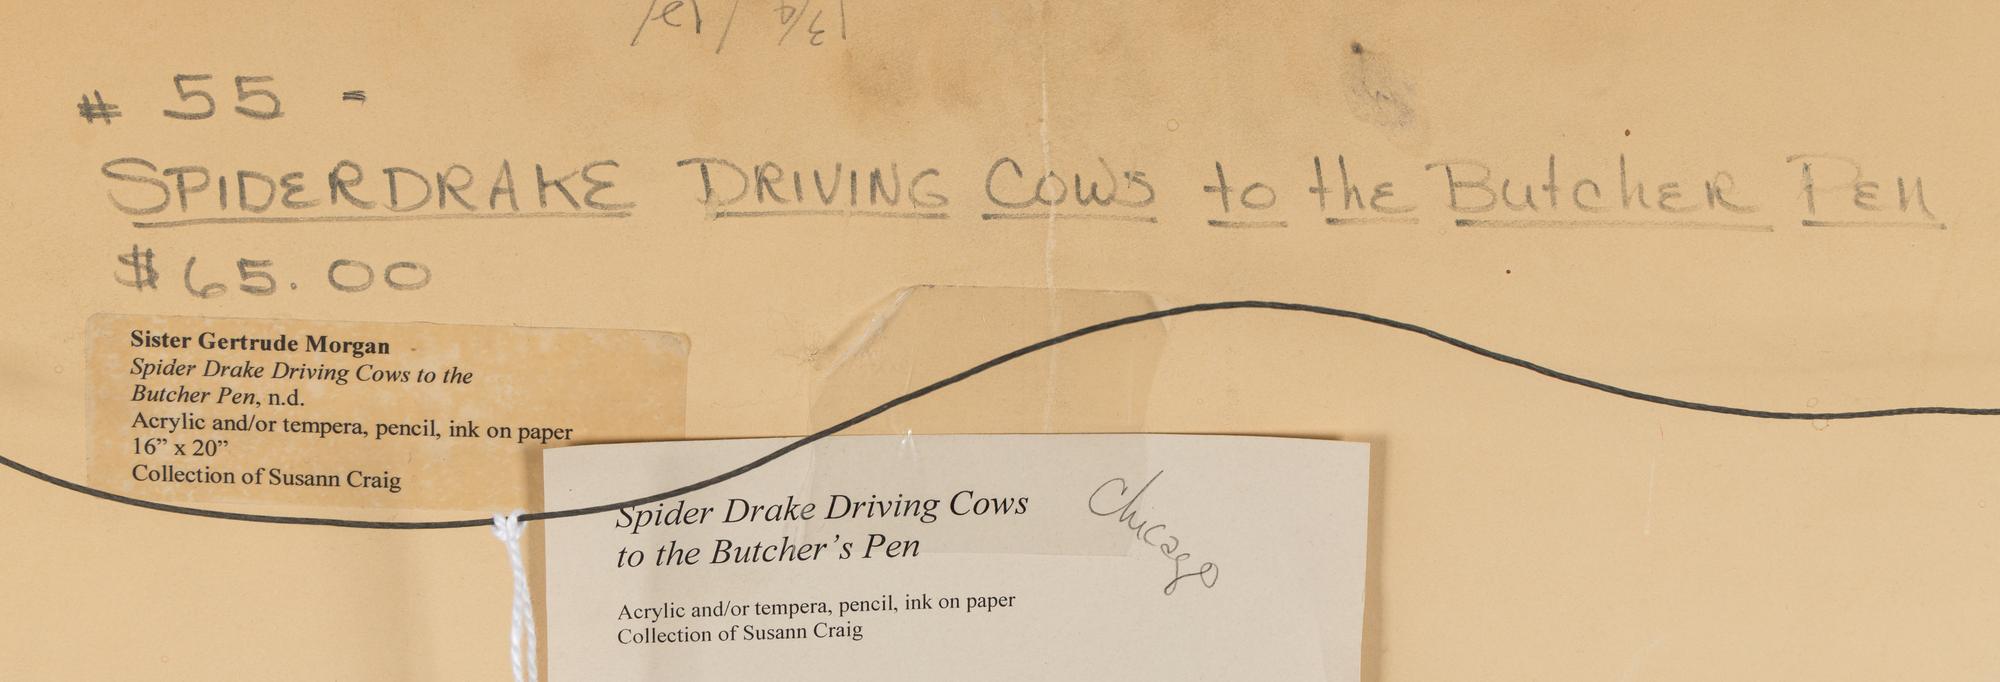 # 55 -
SPIDERDRAKE DRIVING COWS to the ButcHER PEN
$65.00
Sister Gertrude Morgan
Spider Drake Driving Cows to the
Butcher Pen, n.d.
Acrylic and/or tempera, pencil, ink on paper
16” x 20”
Collection of Susann Craig
Spider Drake Driving Cows
to the Butcher’s Pen
Chicago
Acrylic and/or tempera, pencil, ink on paper
Collection of Susann Craig